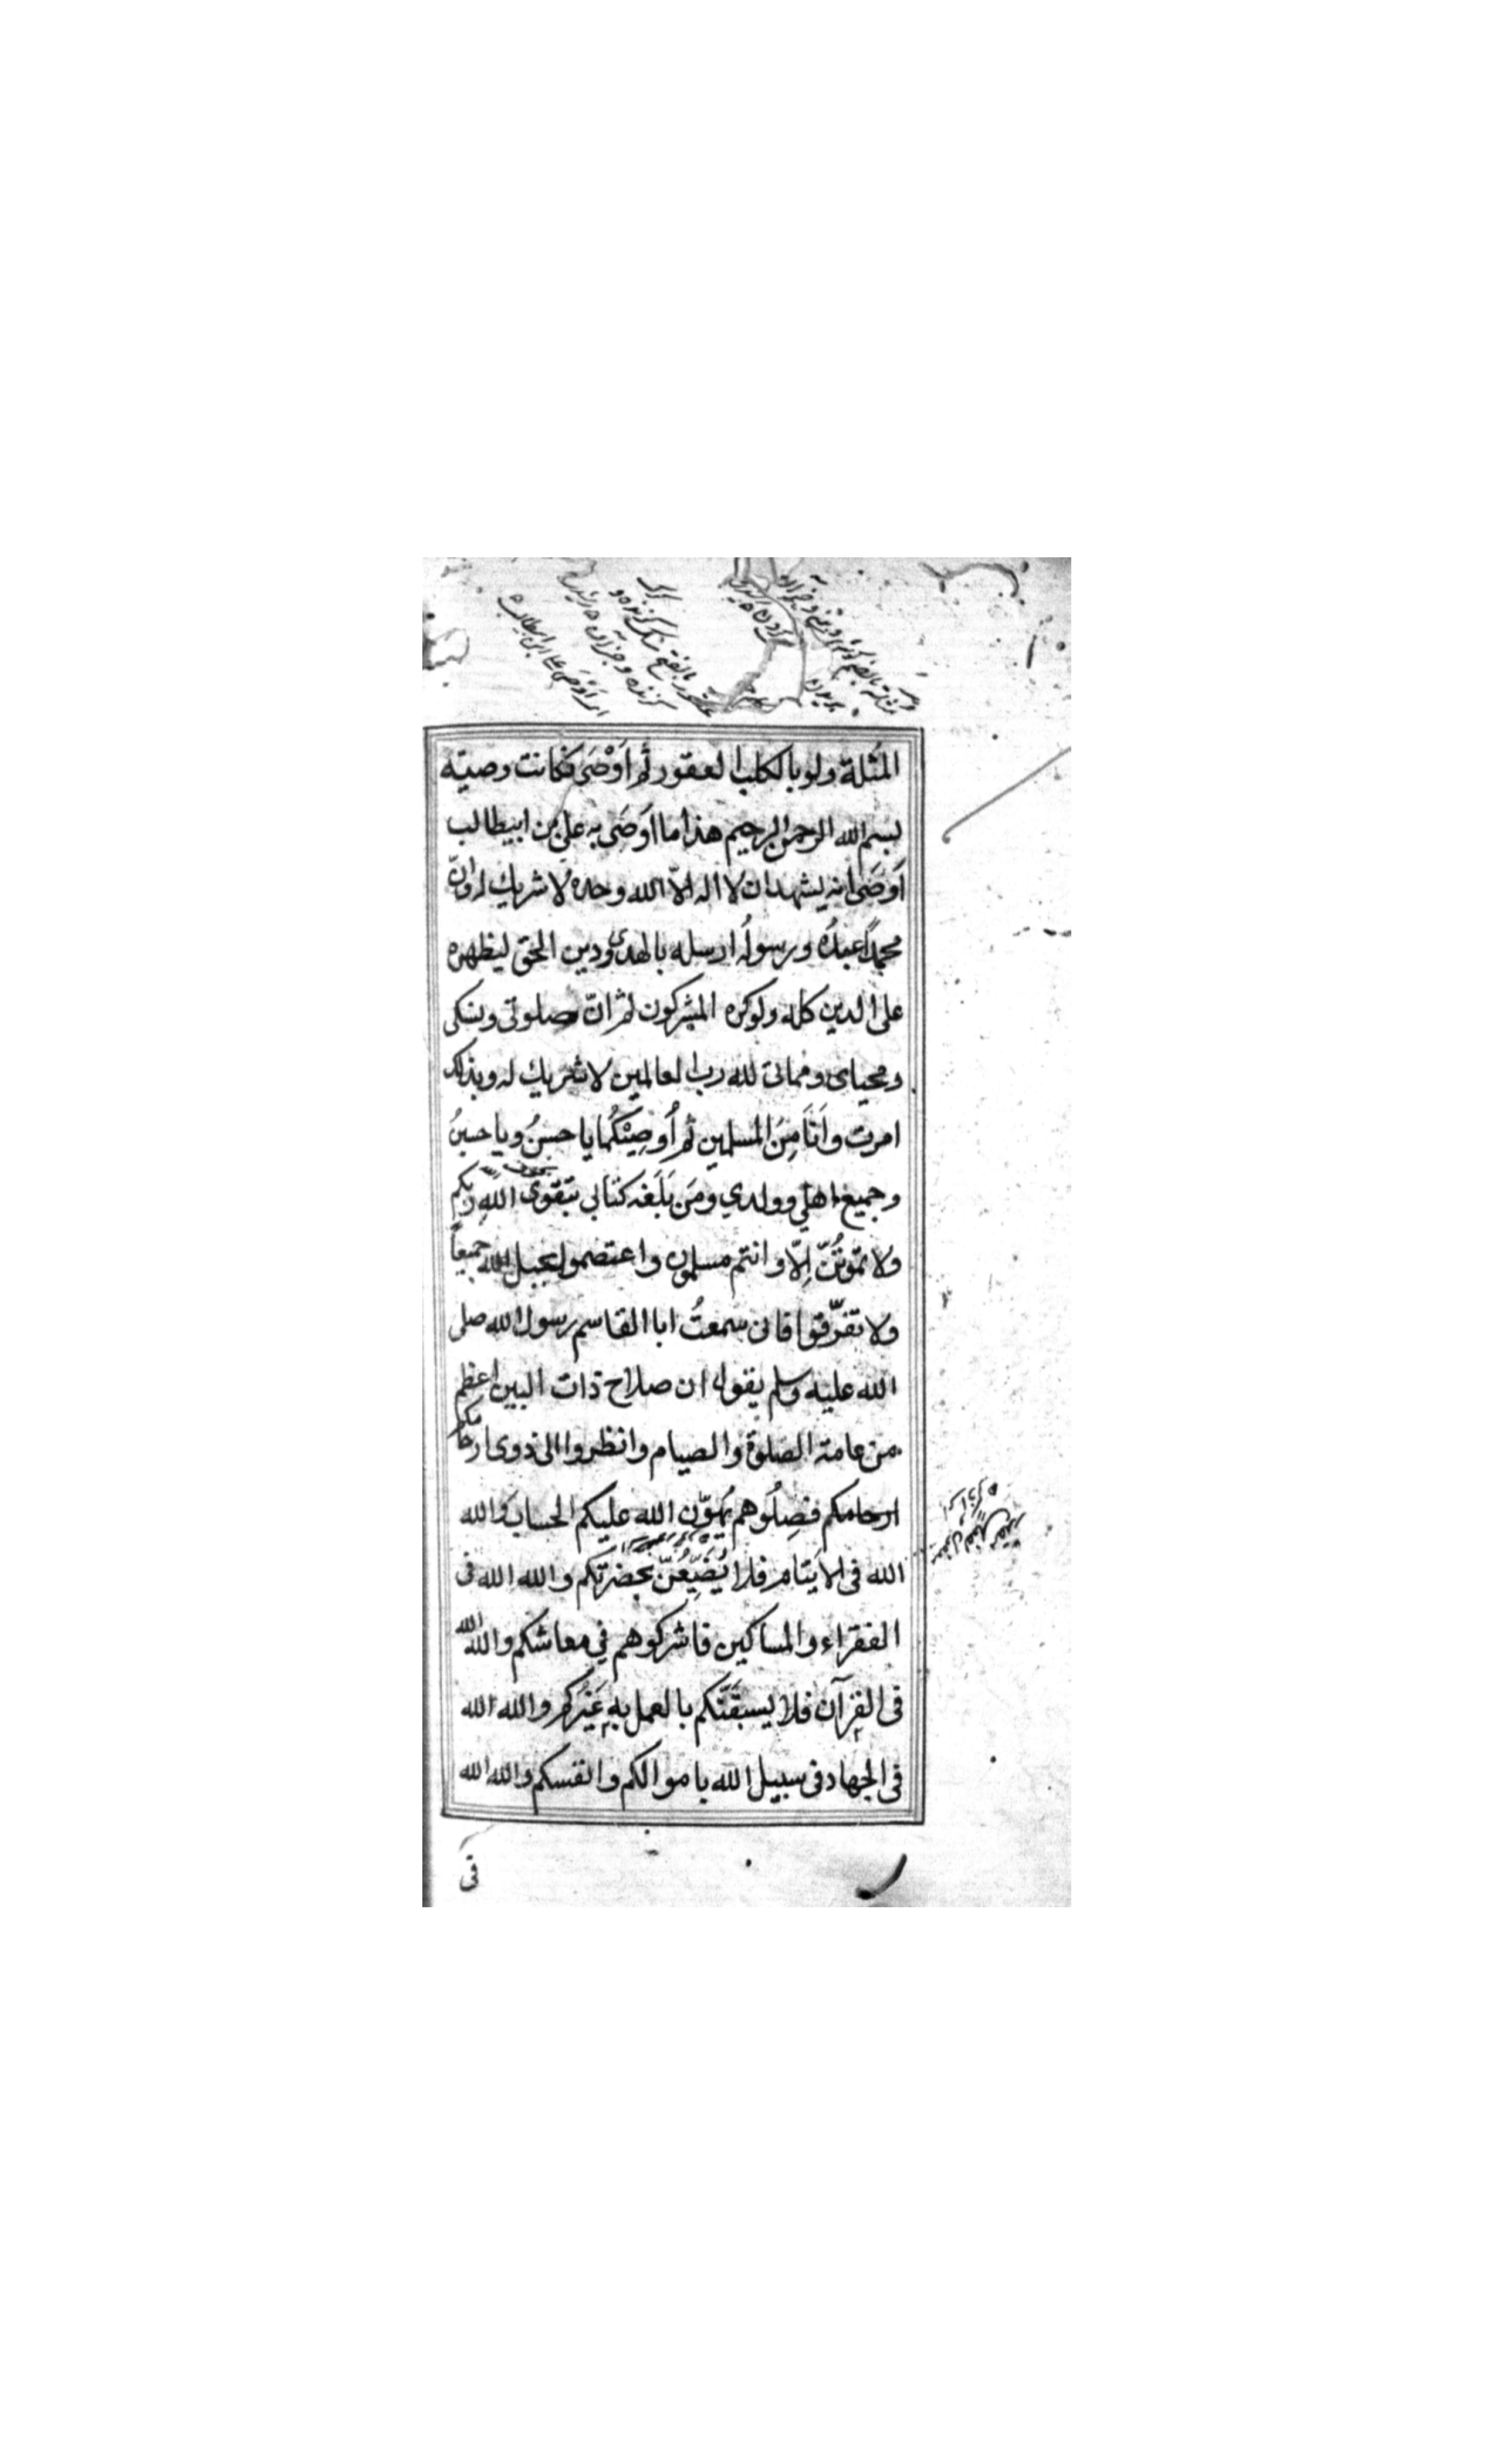 المُثلة ولو بالكلب العقور ثم اَوْصَى فكانت وصيته
بسم الله الرحمن الرحيم هذا ما اوَصَى به علي بن ابيطالب
اَوصَى انه يشهد ان لا اله الّا الله وحده لا شريك له وانّ
محمداً عبدُه ورسولُه ارسله بالهدى ودين الحق ليظهره
على الدين كله ولوكره المشركون ثم انّ صلوتى ونسكى
ومحياى ومماتى لله رب العالمين لا شريك له وبذلك
امرت وأَنَا مِنَ المسلمين ثم أُوصِيْكُما يا حسنُ ويا حسينُ
وجميع اهلي وولدي ومَن بَلَغَه كتابى بتقوى اللهِ ربكم
ولا تموتُنّ اِلّا وانتم مسلمون واعتصموا بحبل الله جميعاً
ولا تفرّقوا فانى سمعتُ ابا القاسم رسول الله صلى
الله عليه وسلم يقول ان صلاح ذات البين اعظم
من عامة الصلوة والصيام وانظروا الى ذوى ارحامكم
ارحامكم فصِلُوهم يُهوّن الله عليكم الحسابَ والله
الله فى الايتام فلا يُضَيِّعُنّ بحضرتكم والله الله فى
الفقراء والمساكين فاشركوهم في معاشكم والله الله
فى القرآن فلا يسبقَنّكم بالعمل به غَيْركم والله الله
فى الجهاد فى سبيل الله باموالكم وانفسكم والله الله
فى